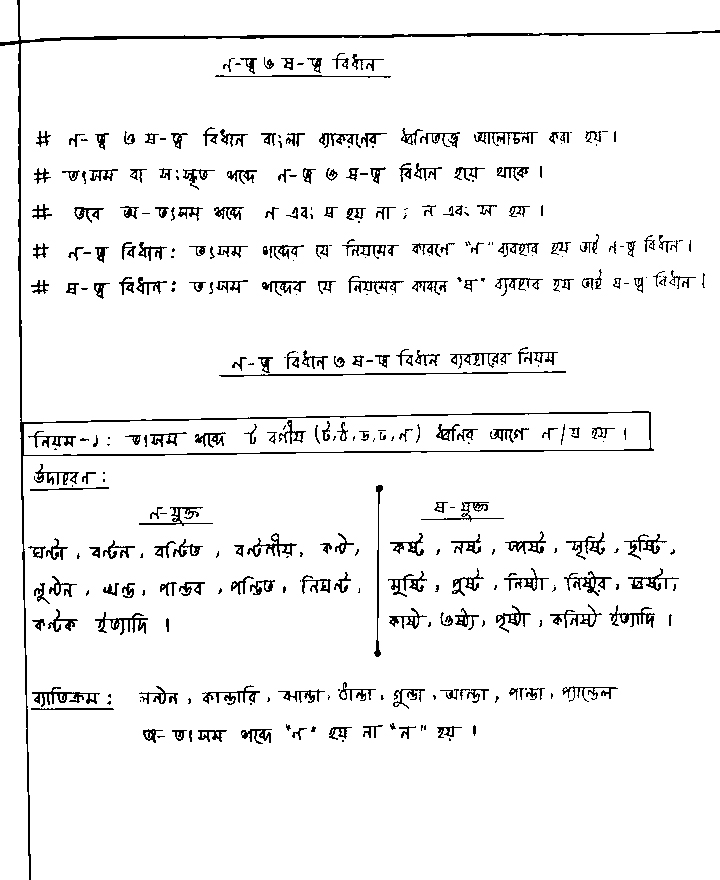 ণ-ত্ব ও ষ-ত্ব বিধান
# ণ-ত্ব ও ষ-ত্ব বিধান বাংলা ব্যাকরনের ধ্বনিতত্ত্বে আলোচনা করা হয়।
# তৎসম বা সংস্কৃত শব্দে ণ-ত্ব ও ষ-ত্ব বিধান হয়ে থাকে।
# তবে অ-তৎসম শব্দে ণ এবং ষ হয় না; ন এবং স হয়।
# ণ-ত্ব বিধান: তৎসম শব্দের যে নিয়মের কারনে "ণ" ব্যবহার হয় তাই ণ-ত্ব বিধান।
# ষ-ত্ব বিধান: তৎসম শব্দের যে নিয়মের কারনে "ষ" ব্যবহার হয় তাই ষ-ত্ব বিধান।
ণ-ত্ব বিধান ও ষ-ত্ব বিধান ব্যবহারের নিয়ম
নিয়ম-১: তৎসম শব্দে ট বর্গীয় (ট,ঠ,ড,ঢ,ণ) ধ্বনির আগে ণ/ষ হয়।
উদাহরন:
ণ-যুক্ত
ঘণ্টা, বণ্টন, বণ্টিত, বণ্টনীয়, কণ্ঠ,
লুণ্ঠন, খণ্ড, পাণ্ডব, পণ্ডিত, নিঘণ্ট,
কণ্টক ইত্যাদি।
ষ-যুক্ত
কষ্ট, নষ্ট, স্পষ্ট, সৃষ্টি, দৃষ্টি,
মুষ্টি, পুষ্ট, নিষ্ঠা, নিষ্ঠুর, স্রষ্টা,
কাষ্ঠ, ওষ্ঠ্য, পৃষ্ঠা, কনিষ্ঠ ইত্যাদি।
ব্যাতিক্রম: লন্ঠন, কান্ডারি, ঝান্ডা, ঠান্ডা, গুন্ডা, আন্ডা, পান্ডা, প্যান্ডেল
অ-তৎসম শব্দে "ণ" হয় না "ন" হয়।